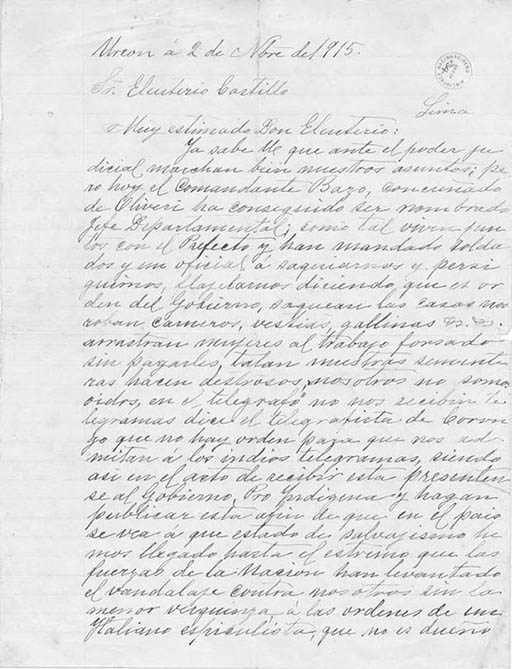 Urcon á 2 de Nbre del 915.
Sr. Eleuterio Castillo
Lima
Muy estimado Don Eleuterio:
Ya sabe U que ante el poder ju
dicial marchan bien nuestros asuntos; pe
ro hoy el Comandante Bazo, concunado
de Oliveri ha conseguido ser nombrado
Jefe Departamental; como tal viven jun
tos con el Prefecto y han mandado solda
dos y un oficial á saquiarnos y persi
guirnos, flajelarnos diciendo, que es or
den del Gobierno, saquean las casas nos
roban carneros, vestias, gallinas &. &.
arrastran mujeres al trabajo forsado
sin pagarles, talan nuestras semente
ras hacen destrosos, nosotros no somos
oidos, en el telegrafo no nos reciben te
legramas dice el telegrafista de Coron
go que no hay orden para que nos ad
mitan á los indios telegramas, siendo
asi en el acto de recibir esta presenten
se al Gobierno, Pro Indigena y hagan
publicar esta afin de que en el pais
se vea á que estado de salvajismo he
mos llegado hasta el estremo que las
fuerzas de la Nacion han levantado
el vandalaje contra nosotros sin la
menor verguenza á las ordenes de un
Italiano espiculista, que no es dueño